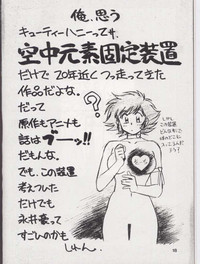 俺、思う
キューティーハニーってサ、
空中元素固定装置
だけで20年近くつっ走ってきた
作品だよな。
だって
原作もアニメも
話はブーッ!!
だもんな。
でも、この装置
考えついた
だけでも
永井豪って
すごいのかも
しんない。
?
しかし
この装置